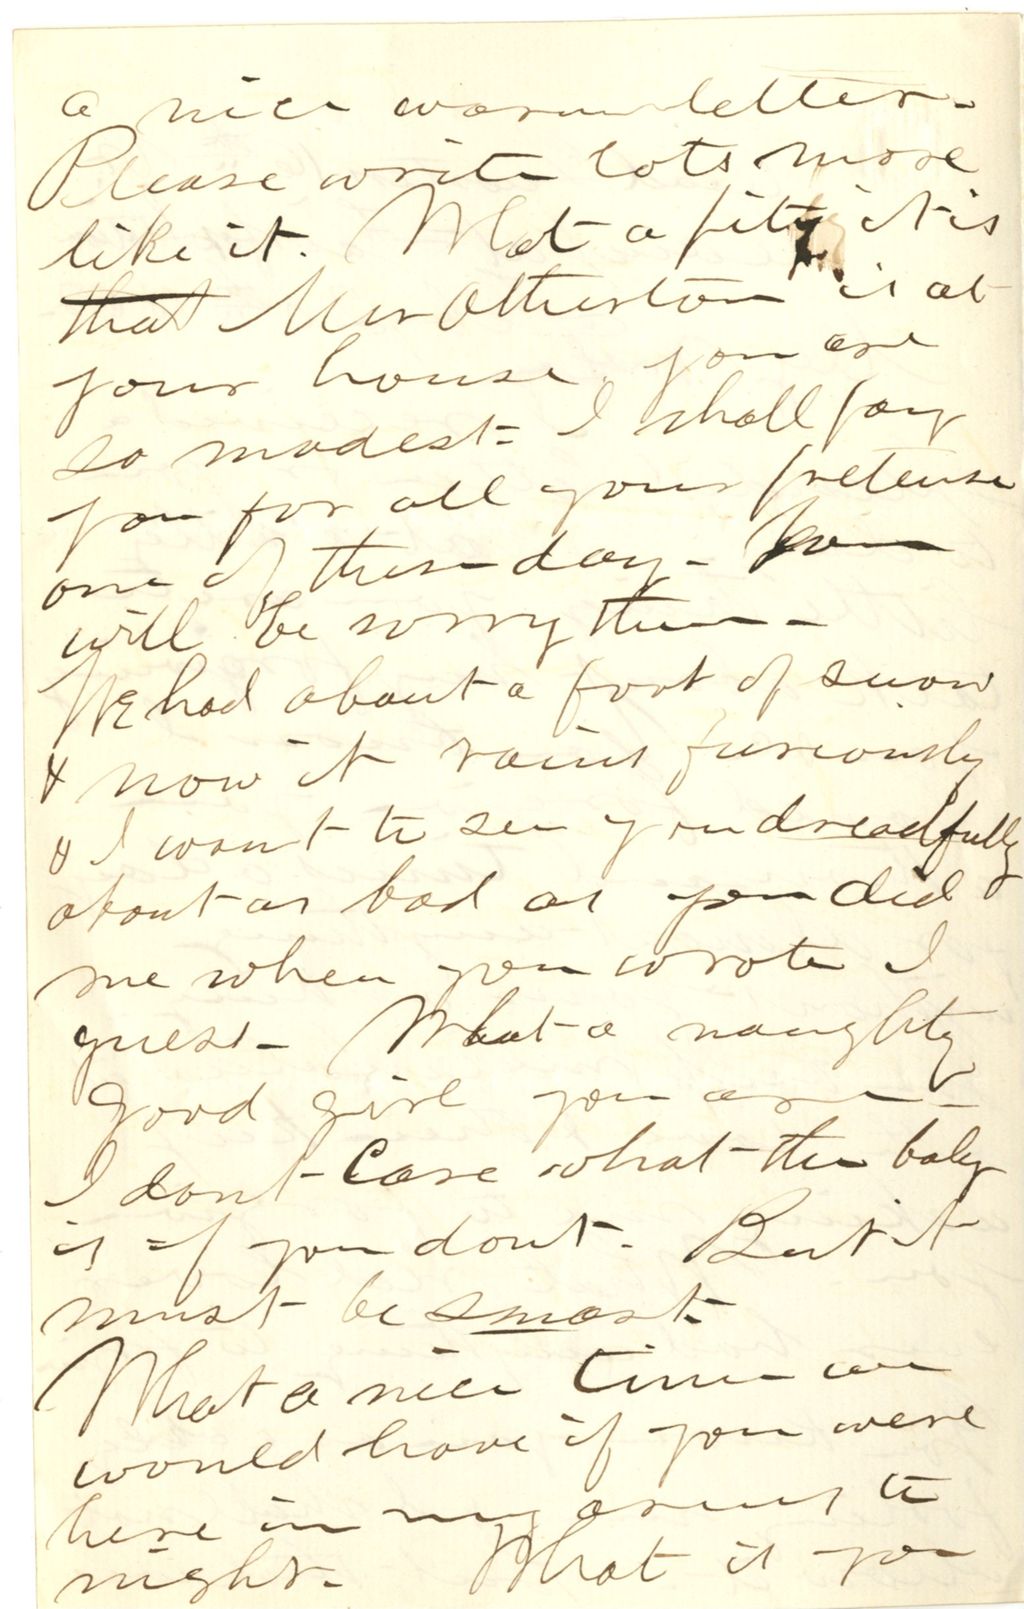 a nice warm letter-
Please write lots more
like it. What a pity it is
that Mr Atherton is at
your house. you are
so modest- I shall pay
you for all your pretense
one of these day- You
will be sorry then-
We had about a foot of snow
& now it rains furiously
& I want to see you dreadfully
about as bad as you did
me when you wrote I
guess- What a naughty
good girl you are-
I dont care what the baby
is if you dont. But it
must be smart.
What a nice time we
would have if you were
here in my arms to
night- What is you